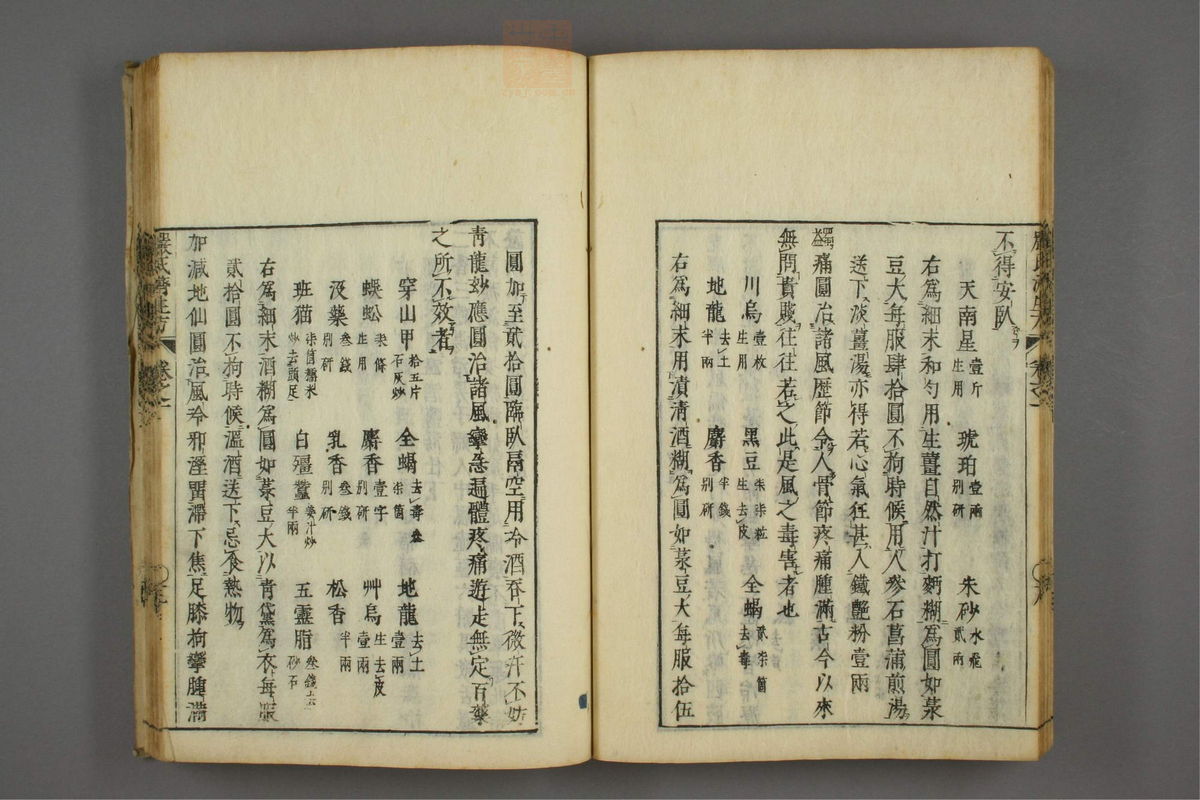 不得安臥
天南星壹斤生用 琥珀壹兩別研 朱砂水飛貳兩
右爲細末和勻用生薑自然汁打麪糊爲圓如菉
豆大每服肆拾圓不拘時候用人參石菖蒲煎湯
送下淡薑湯亦得若心氣狂甚入鐵艷粉壹兩
痛圓治諸風歷節令人骨節疼痛腫滿古今以來
無問貴賤往往苦之此是風之毒害者也
川烏壹枚生用 黑豆柒粒生去皮 全蝎貳柒箇去毒
地龍去土半兩 麝香半錢別研
右爲細末用漬清酒糊爲圓如菉豆大每服拾伍
圓加至貳拾圓臨臥鬲空用冷酒吞下微汗不妨
靑龍玅應圓治諸風攣急遍體疼痛遊走無定百藥
之所不效者
穿山甲拾五片石灰炒 全蝎去毒柒箇 地龍去土壹兩
蜈蚣柒條生用 麝香壹字別研 艸烏生去皮壹兩
沒藥叁錢別研 乳香叁錢別研 松香半兩
班猫柒箇糯米炒去頭足 白殭蠶薑汁炒半兩 五靈脂叁錢去砂石
右爲細末酒糊爲圓如菉豆大以靑黛爲衣每服
貳拾圓不拘時候溫酒送下忌食熱物
加減地仙圓治風冷邪溼畱滯下焦足膝拘攣腫滿
嚴氏濟生方 卷之一